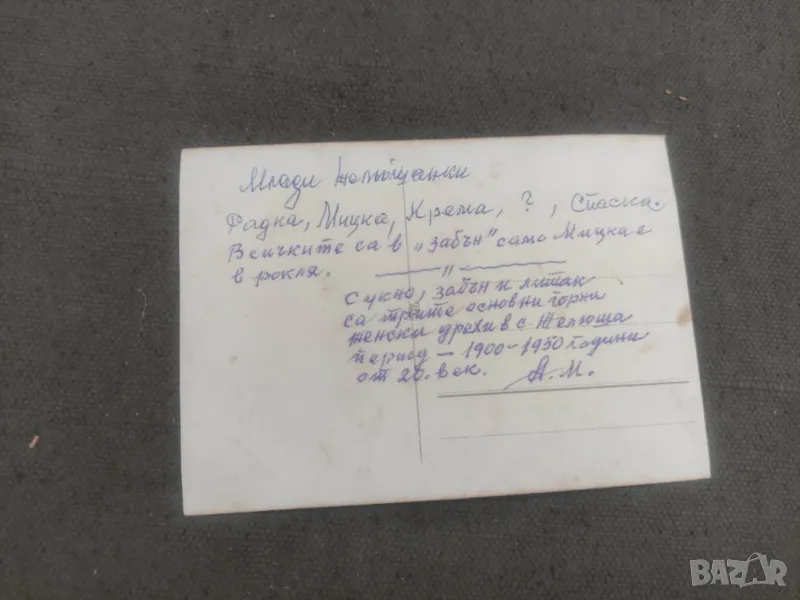 Млади желюшанки
Радка, Мицка, Крема, ?, Спаска.
Всичките са в „забън" само Мицка е
в рокля.
— " —
Сукно, забън и литак
са трите основни горни
женски дрехи в с. Желюша
период – 1900–1950 години
от 20. век. А.М.
BAZAR